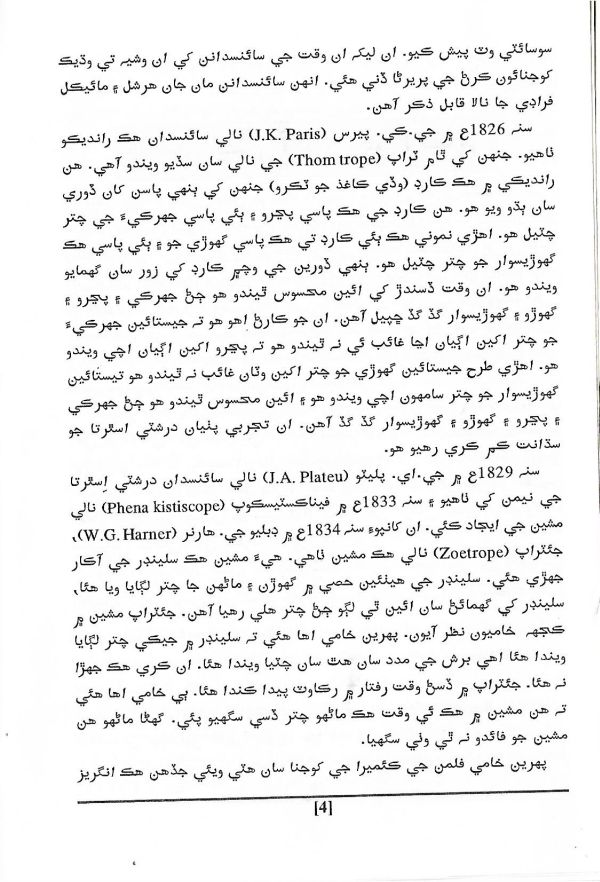 سوسائٽي وٽ پيش ڪيو. ان ليکہ ان وقت جي سائنسدانن کي ان وشيہ تي وڌيڪ
کوجنائون ڪرڻ جي پريرڻا ڏني هئي. انهن سائنسدانن مان جان هرشل ۽ مائيڪل
فراڊي جا نالا قابل ذڪر آهن.
سنہ 1826ع ۾ جي.ڪي. پيرس (J.K. Paris) نالي سائنسدان هڪ رانديڪو
ٺاهيو. جنهن کي ٿام ٽراپ (Thom trope) جي نالي سان سڏيو ويندو آهي. هن
رانديڪي ۾ هڪ ڪارڊ (وڏي ڪاغذ جو ٽڪرو) جنهن کي ٻنهي پاسن کان ڏوري
سان ٻڌو ويو هو. هن ڪارڊ جي هڪ پاسي پڃرو ۽ ٻئي پاسي جهرڪيءَ جي چتر
چٽيل هو. اهڙي نموني هڪ ٻئي ڪارڊ تي هڪ پاسي گهوڙي جو ۽ ٻئي پاسي هڪ
گهوڙيسوار جو چتر چٽيل هو. ٻنهي ڏورين جي وچ۾ ڪارڊ کي زور سان گهمايو
ويندو هو. ان وقت ڏسندڙ کي ائين محسوس ٿيندو هو ڄڻ جهرڪي ۽ پڃرو ۽
گهوڙو ۽ گهوڙيسوار گڏ گڏ ڇپيل آهن. ان جو ڪارڻ اهو هو تہ جيستائين جهرڪيءَ
جو چتر اکين اڳيان اڃا غائب ئي نہ ٿيندو هو تہ پڃرو اکين اڳيان اچي ويندو
هو. اهڙي طرح جيستائين گهوڙي جو چتر اکين وٽان غائب نہ ٿيندو هو تيستائين
گهوڙيسوار جو چتر سامهون اچي ويندو هو ۽ ائين محسوس ٿيندو هو ڄڻ جهرڪي
۽ پڃرو ۽ گهوڙو ۽ گهوڙيسوار گڏ گڏ آهن. ان تجربي پٺيان درشتي اسٿرتا جو
سڌانت ڪم ڪري رهيو هو.
سنہ 1829ع ۾ جي.اي. پليٽو (J.A. Plateu) نالي سائنسدان درشتي اِسٿرتا
جي نيمن کي ٺاهيو ۽ سنہ 1833ع ۾ فيناڪسٽيسڪوپ (Phena kistiscope) نالي
مشين جي ايجاد ڪئي. ان کانپوءِ سنہ 1834ع ۾ ڊبليو جي. هارنر (W.G. Harner)،
جئٽراپ (Zoetrope) نالي هڪ مشين ٺاهي. هيءَ مشين هڪ سلينڊر جي آڪار
جهڙي هئي. سلينڊر جي هيٺئين حصي ۾ گهوڙن ۽ ماڻهن جا چتر لڳايا ويا هئا،
سلينڊر کي گهمائڻ سان ائين ٿي لڳو ڄڻ چتر هلي رهيا آهن. جئٽراپ مشين ۾
ڪجهہ خاميون نظر آيون. پهرين خامي اها هئي تہ سلينڊر ۾ جيڪي چتر لڳايا
ويندا هئا اهي برش جي مدد سان هٿ سان چٽيا ويندا هئا. ان ڪري هڪ جهڙا
نہ هئا. جئٽراپ ۾ ڏسڻ وقت رفتار ۾ رڪاوٽ پيدا ڪندا هئا. ٻي خامي اها هئي
تہ هن مشين ۾ هڪ ئي وقت هڪ ماڻهو چتر ڏسي سگهيو پئي. گهڻا ماڻهو هن
مشين جو فائدو نہ ٿي وٺي سگهيا.
پهرين خامي فلمن جي ڪئميرا جي کوجنا سان هٽي ويئي جڏهن هڪ انگريز
[4]